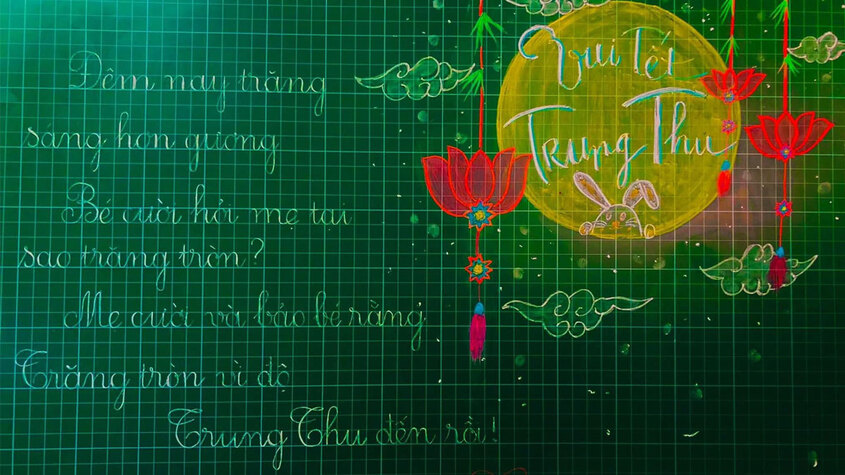 Đêm nay trăng
sáng hơn gương
Bé cười hỏi mẹ tại
sao trăng tròn?
Mẹ cười và bảo bé rằng
Trăng tròn vì độ
Trung Thu đến rồi!
Vui Tết
Trung Thu